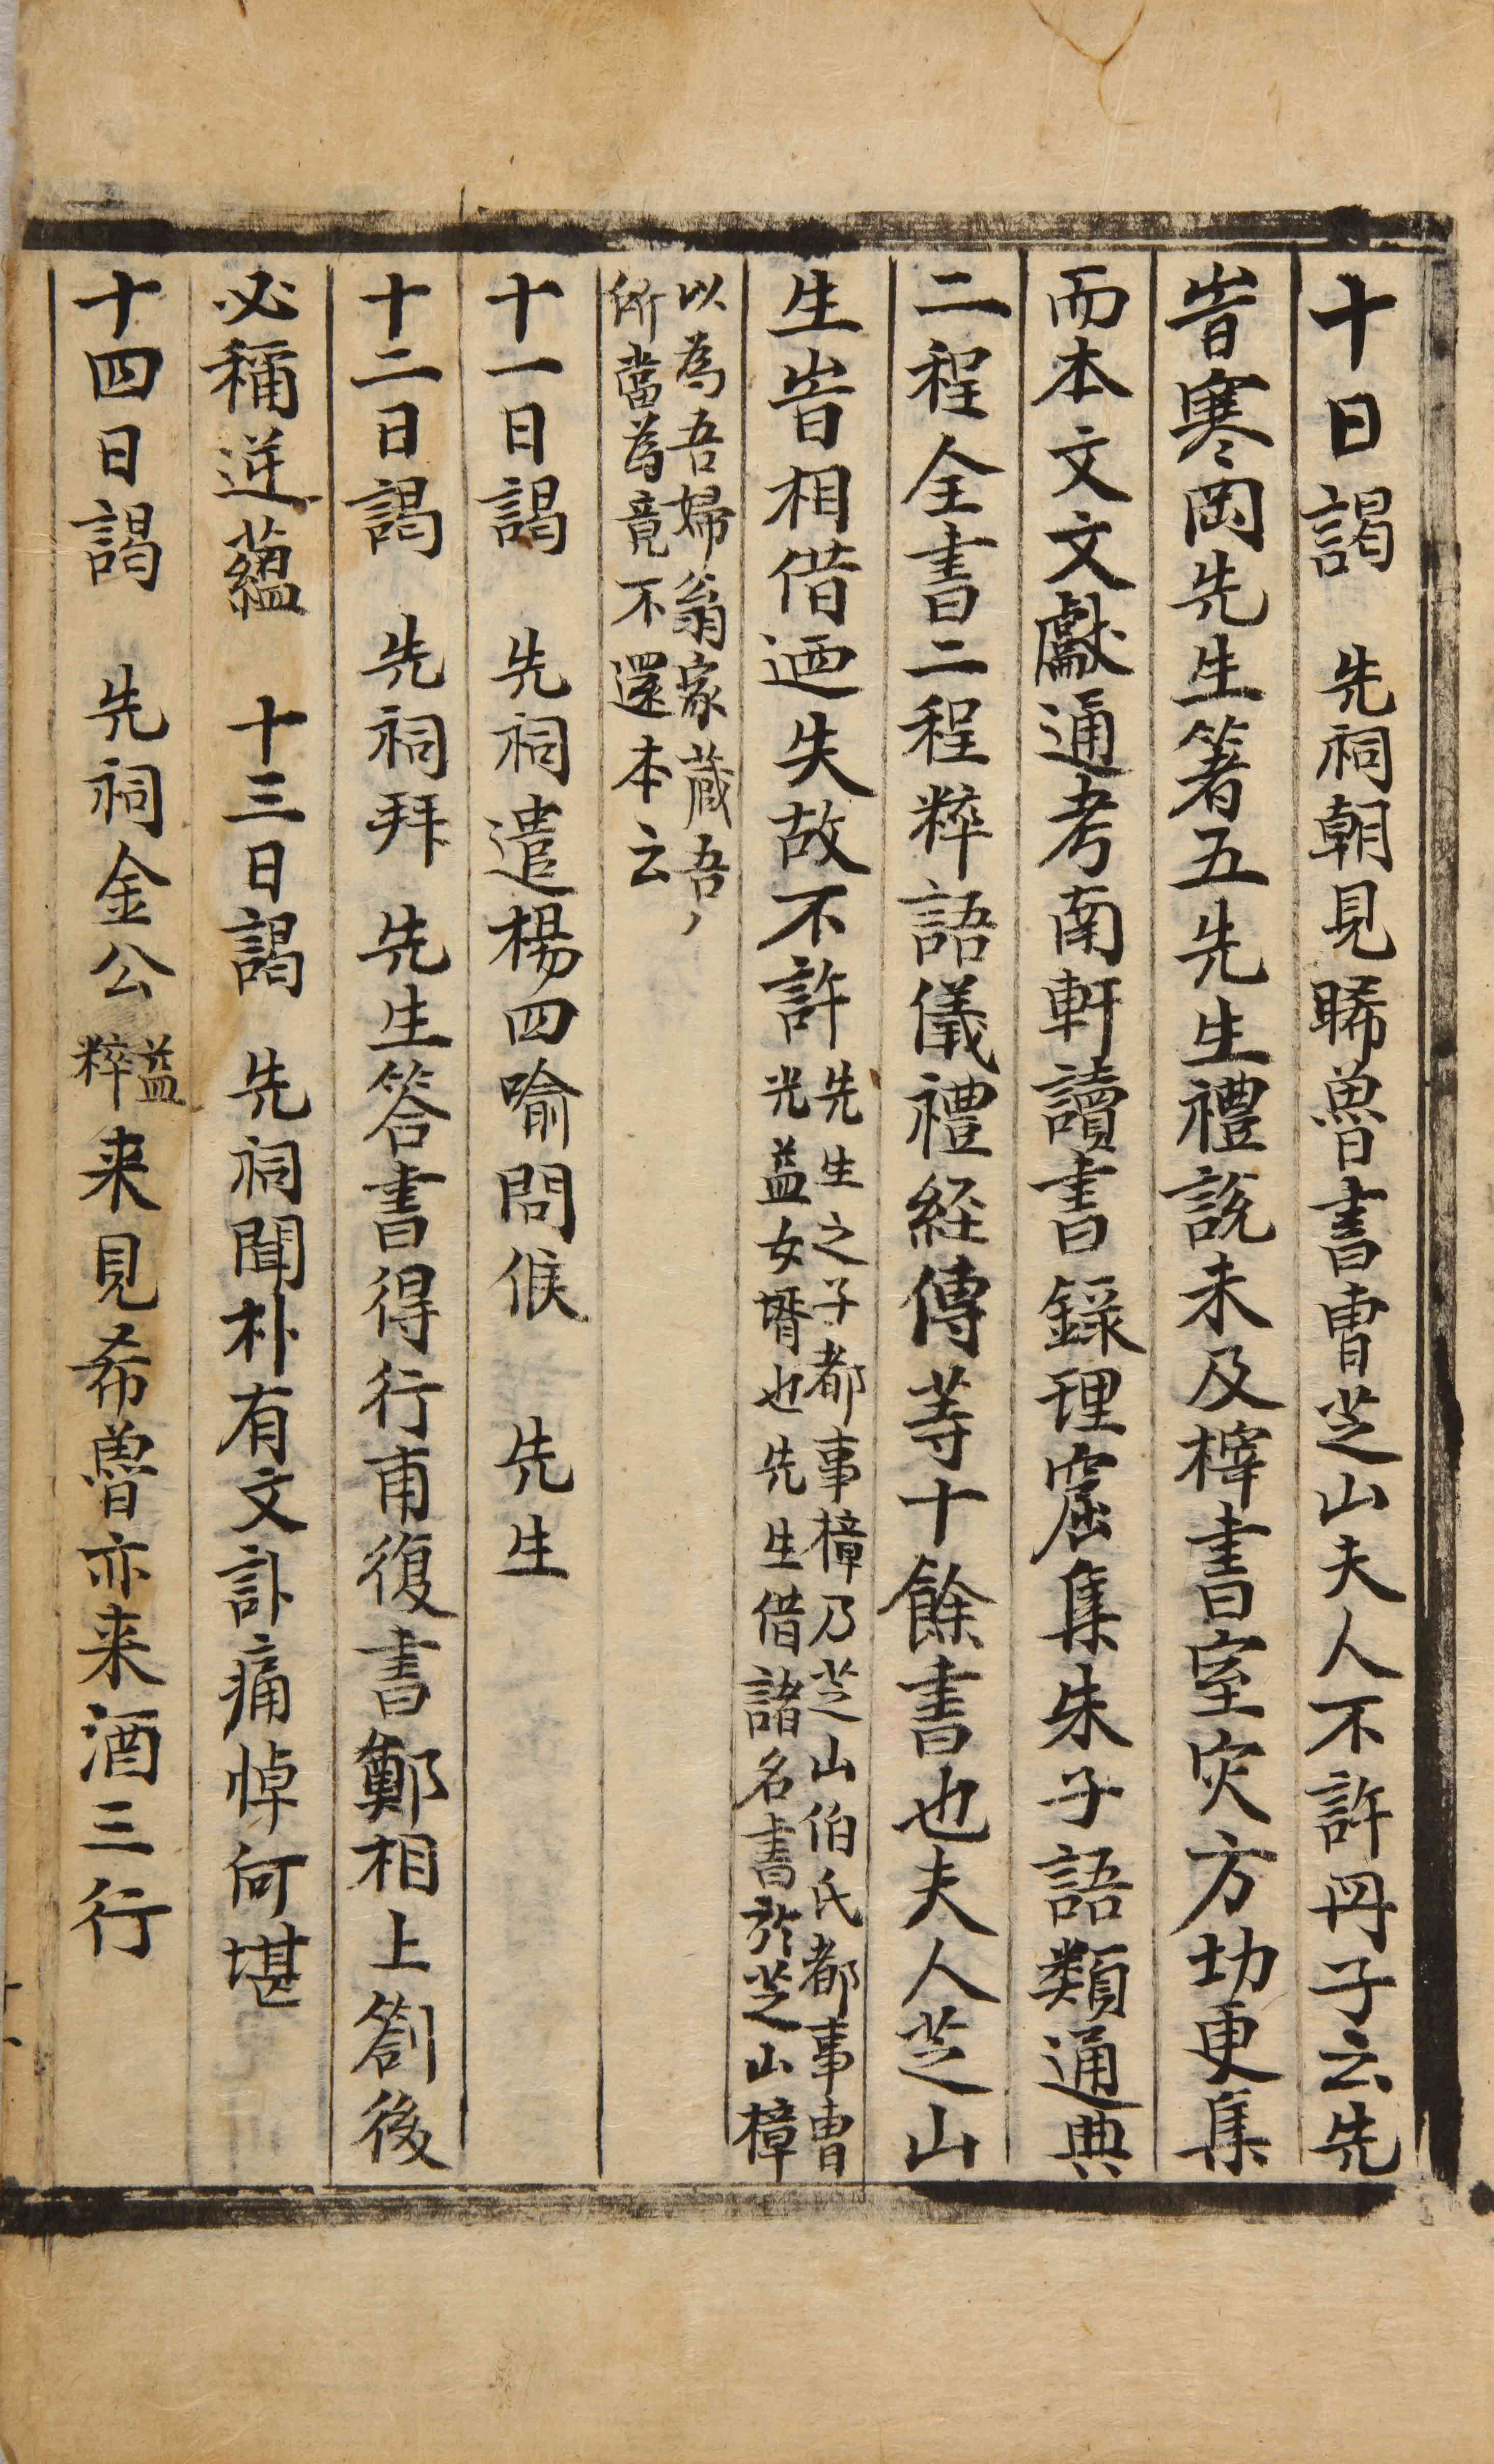 十日謁 先祠朝見睎魯書曺芝山夫人不許丹子云先
旹寒岡先生著五先生禮說未及梓書室灾方切更集
而本文文獻通考南軒讀書錄理窟集朱子語類通典
二程全書二程粹語儀禮經傳等十餘書也夫人芝山
生旹相借迺失故不許
先生之子都事樟乃芝山伯氏都事曺
光益女壻也先生借諸名書於芝山樟
以為吾婦翁家蔵吾丶
所當為竟不還本云
十一日謁 先祠遣楊四喻問候 先生
十二日謁 先祠拜 先生答書得行甫復書鄭相上劄後
必稱逆蘊 十三日謁 先祠聞朴有文訃痛悼何堪
十四日謁 先祠金公
益
粹
来見希魯亦来酒三行